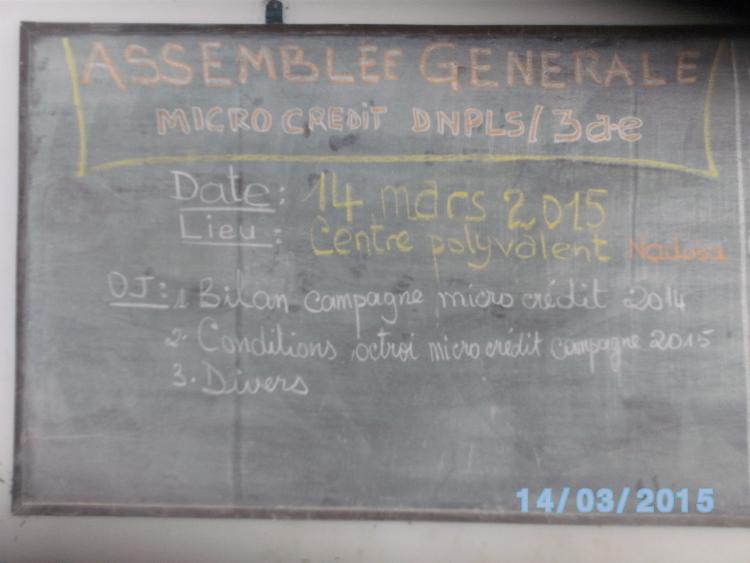 ASSEMBLEE GENERALE
MICRO CREDIT DNPLS/3ae
Date: 14 mars 2015
Lieu: Centre polyvalent
OJ: 1 Bilan campagne micro crédit 2014
2. Conditions octroi micro crédit campagne 2015
3. Divers
14/03/2015